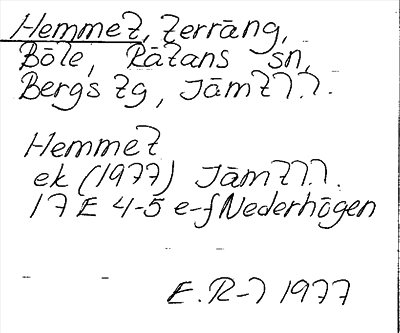 Hemmet, terräng,
Böle, Rätans sn,
Bergs tg, Jämtl.
Hemmet
ek (1977) Jämtl.
17 E 4-5 e-f Nederhögen
E. R-l 1977